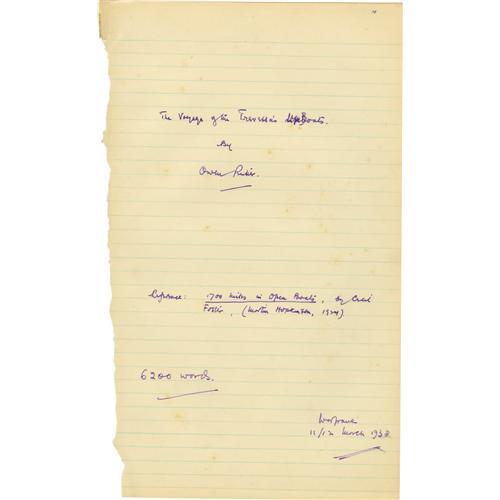 The Voyage of the Trevessa's Boats.
By
Owen Rutter.
Reference: 1700 miles in Open Boats, by Cecil
Foster, (Martin Hopkinson, 1924)
6200 words.
11/12 March